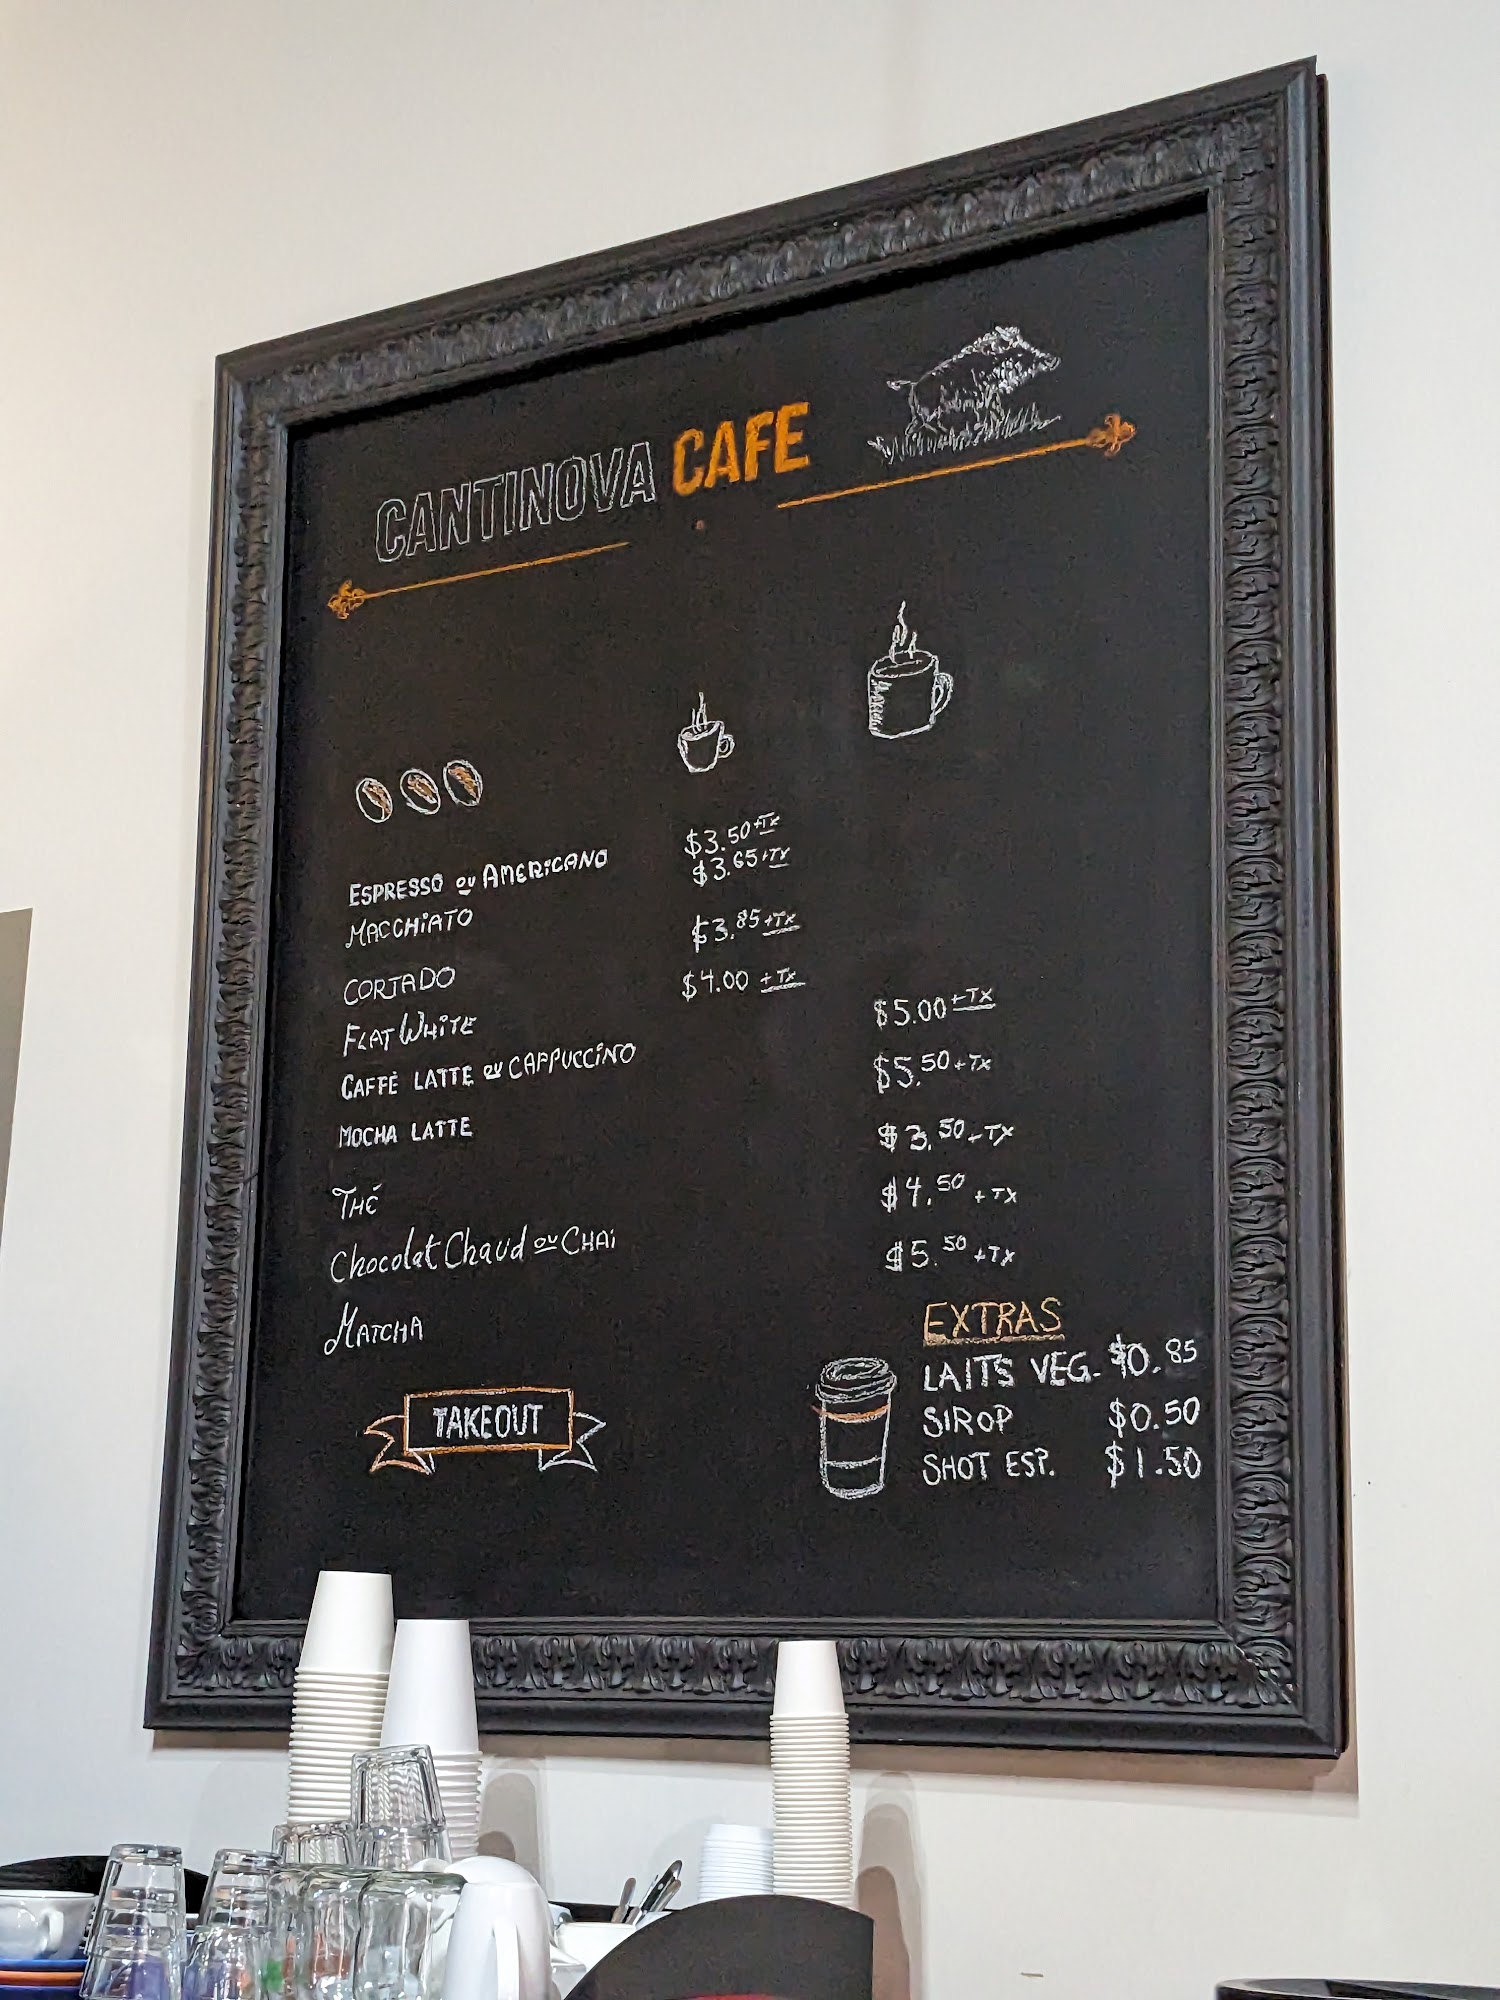 CANTINOVA CAFE
ESPRESSO ou AMERICANO $3.50 +TX
MACCHIATO $3.65 +TX
CORTADO $3.85 +TX
FLAT WHITE $4.00 +TX
CAFFÈ LATTE ou CAPPUCCINO $5.00 +TX
MOCHA LATTE $5.50 +TX
THÉ $3.50 +TX
Chocolat Chaud ou CHAI $4.50 +TX
MATCHA $5.50 +TX
EXTRAS
LAITS VEG. $0.85
SIROP $0.50
SHOT ESP. $1.50
TAKEOUT